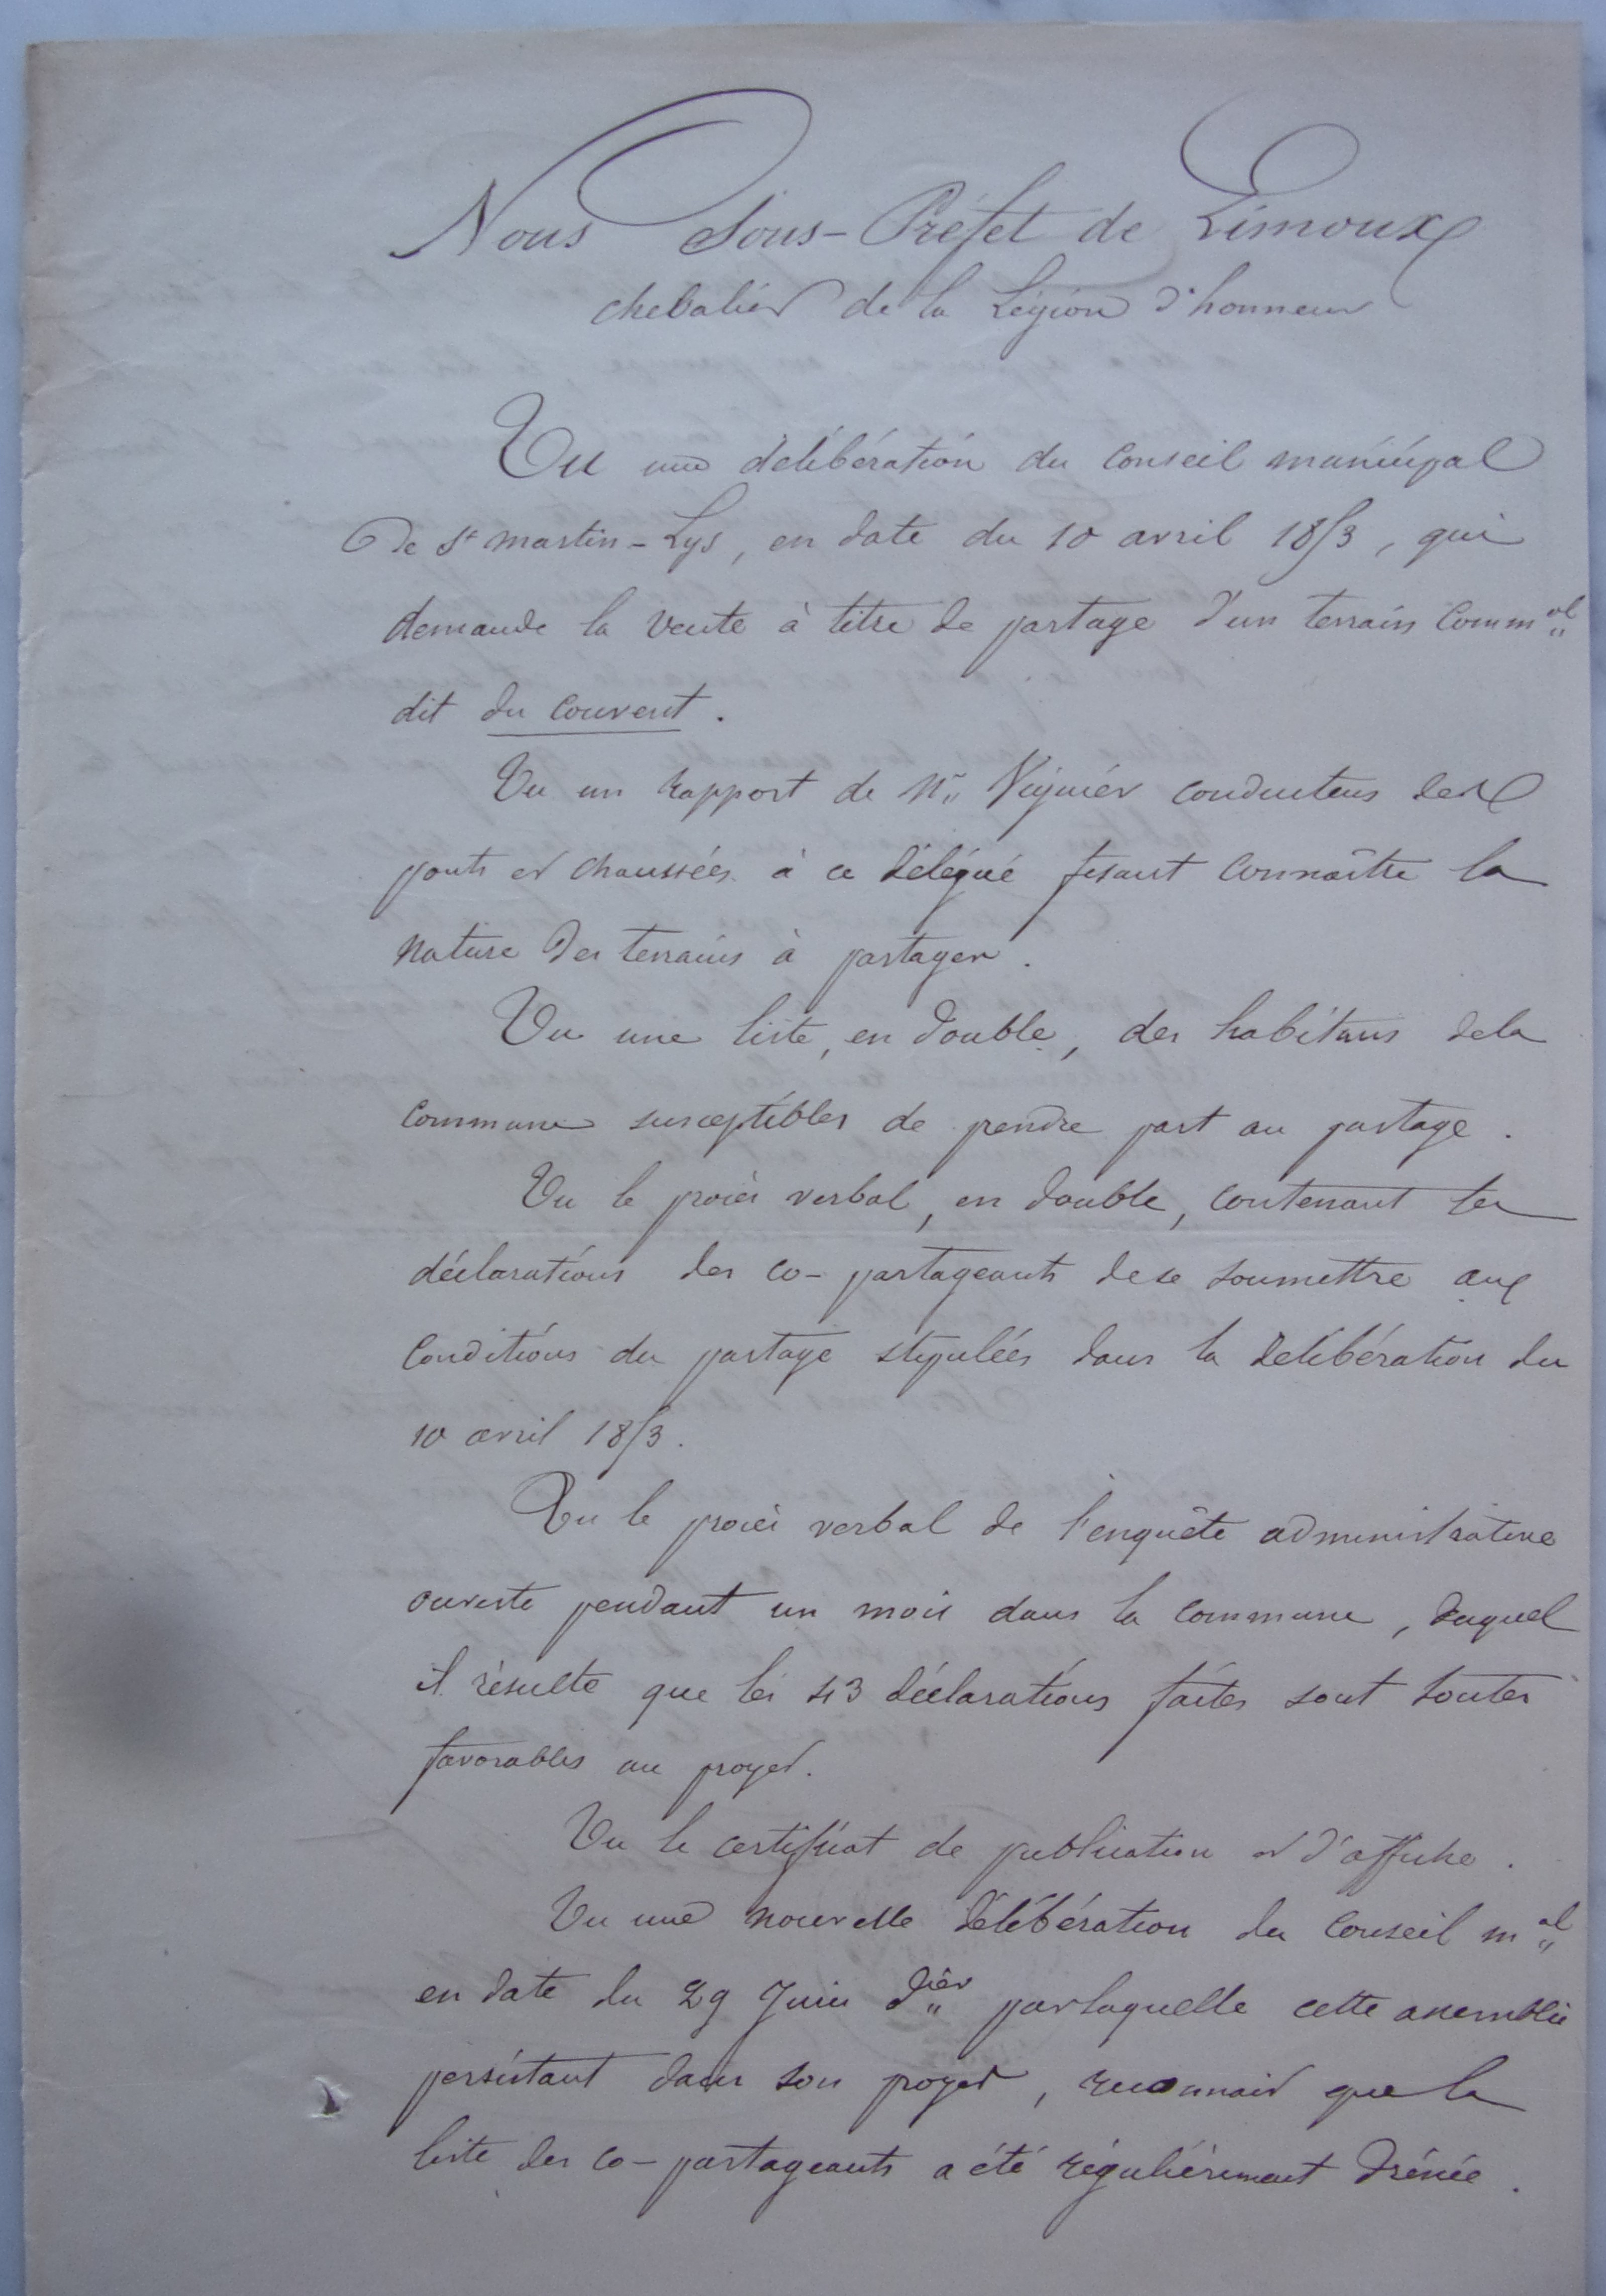 Nous Sous-Préfet de Limoux
chevalier de la Légion d'honneur
Vu une délibération du conseil municipal
de St martin-Lys, en date du 10 avril 1853, qui
demande la vente à titre de partage d'un terrain comm.al
dit du couvent.
Vu un rapport de Mr. Viguier conducteur des
ponts et chaussées à ce délégué fesant connaître la
nature des terrains à partager.
Vu une liste, en double, des habitans dela
commune susceptibles de prendre part au partage.
Vu le procès verbal, en double, contenant les
déclarations des co-partageants dese soumettre aux
conditions du partage stipulées dans la délibération du
10 avril 1853.
Vu le procès verbal de l'enquête administrative
ouverte pendant un mois dans la commune, duquel
il résulte que les 43 déclarations faites sont toutes
favorables au proyet.
Vu le certificat de publication et d'affiche.
Vu une nouvelle délibération du conseil m.al
en date du 29 Juin d.ier parlaquelle cette assemblée
persistant dans son proyet, reconnait que la
liste des co-partageants a été régulièrement dréssée.